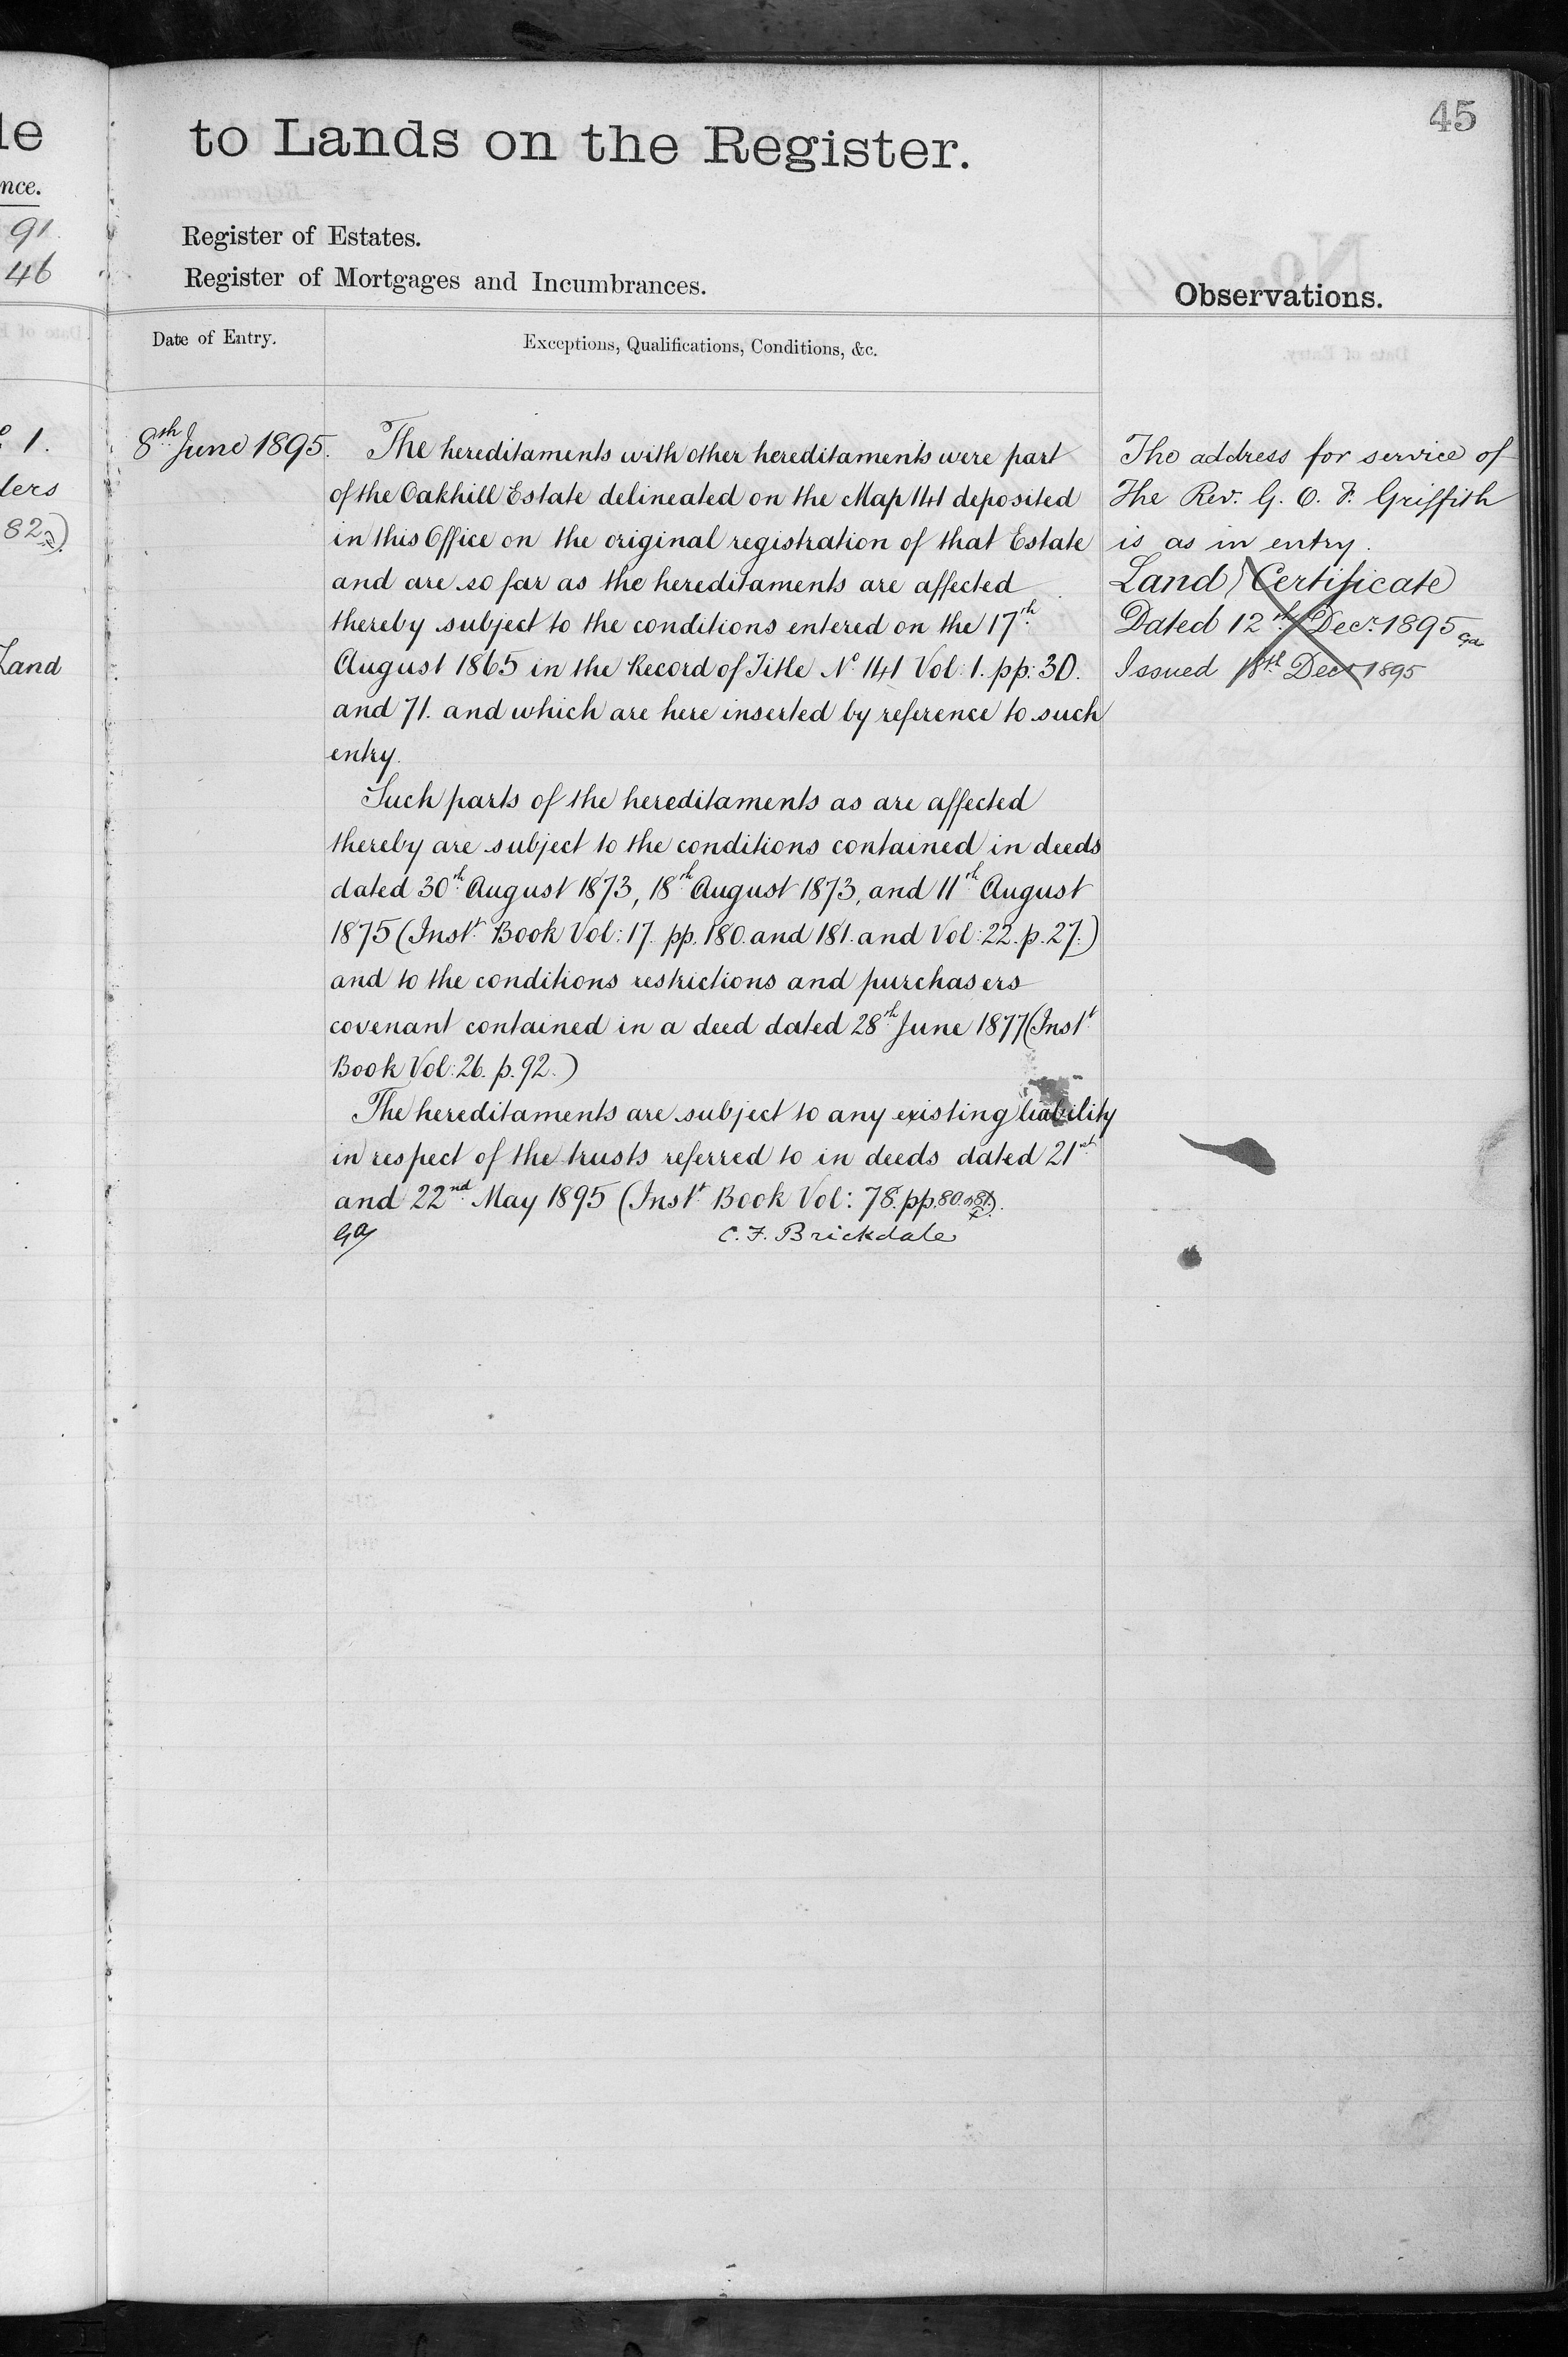 le
nce.
91
46
1.
ders
82
Land
45
to Lands on the Register.
Register of Estates.
Register of Mortgages and Incumbrances.
Observations.
Date of Entry.
Exceptions, Qualifications, Conditions, &c.
8th June 1895.
The hereditaments with other hereditaments were part
of the Oakhill Estate delineated on the Map 141 deposited
in this Office on the original registration of that Estate
and are so far as the hereditaments are affected
thereby subject to the conditions entered on the 17th
August 1865 in the Record of Title No 141 Vol: 1. pp: 30.
and 71. and which are here inserted by reference to such
entry.
Such parts of the hereditaments as are affected
thereby are subject to the conditions contained in deeds
dated 30th August 1873, 18th August 1873, and 11th August
1875 (Inst. Book Vol: 17. pp. 180. and 181. and Vol: 22. p. 27.)
and to the conditions restrictions and purchasers
covenant contained in a deed dated 28th June 1877 (Inst.
Book Vol: 26. p. 92.)
The hereditaments are subject to any existing liability
in respect of the trusts referred to in deeds dated 21st
and 22nd May 1895 (Inst. Book Vol: 78. pp. 80. 81).
C. F. Brickdale
The address for service of
The Rev. G. O. F. Griffith
is as in entry.
Land Certificate
Dated 12th Decr. 1895
Issued 18th Decr 1895